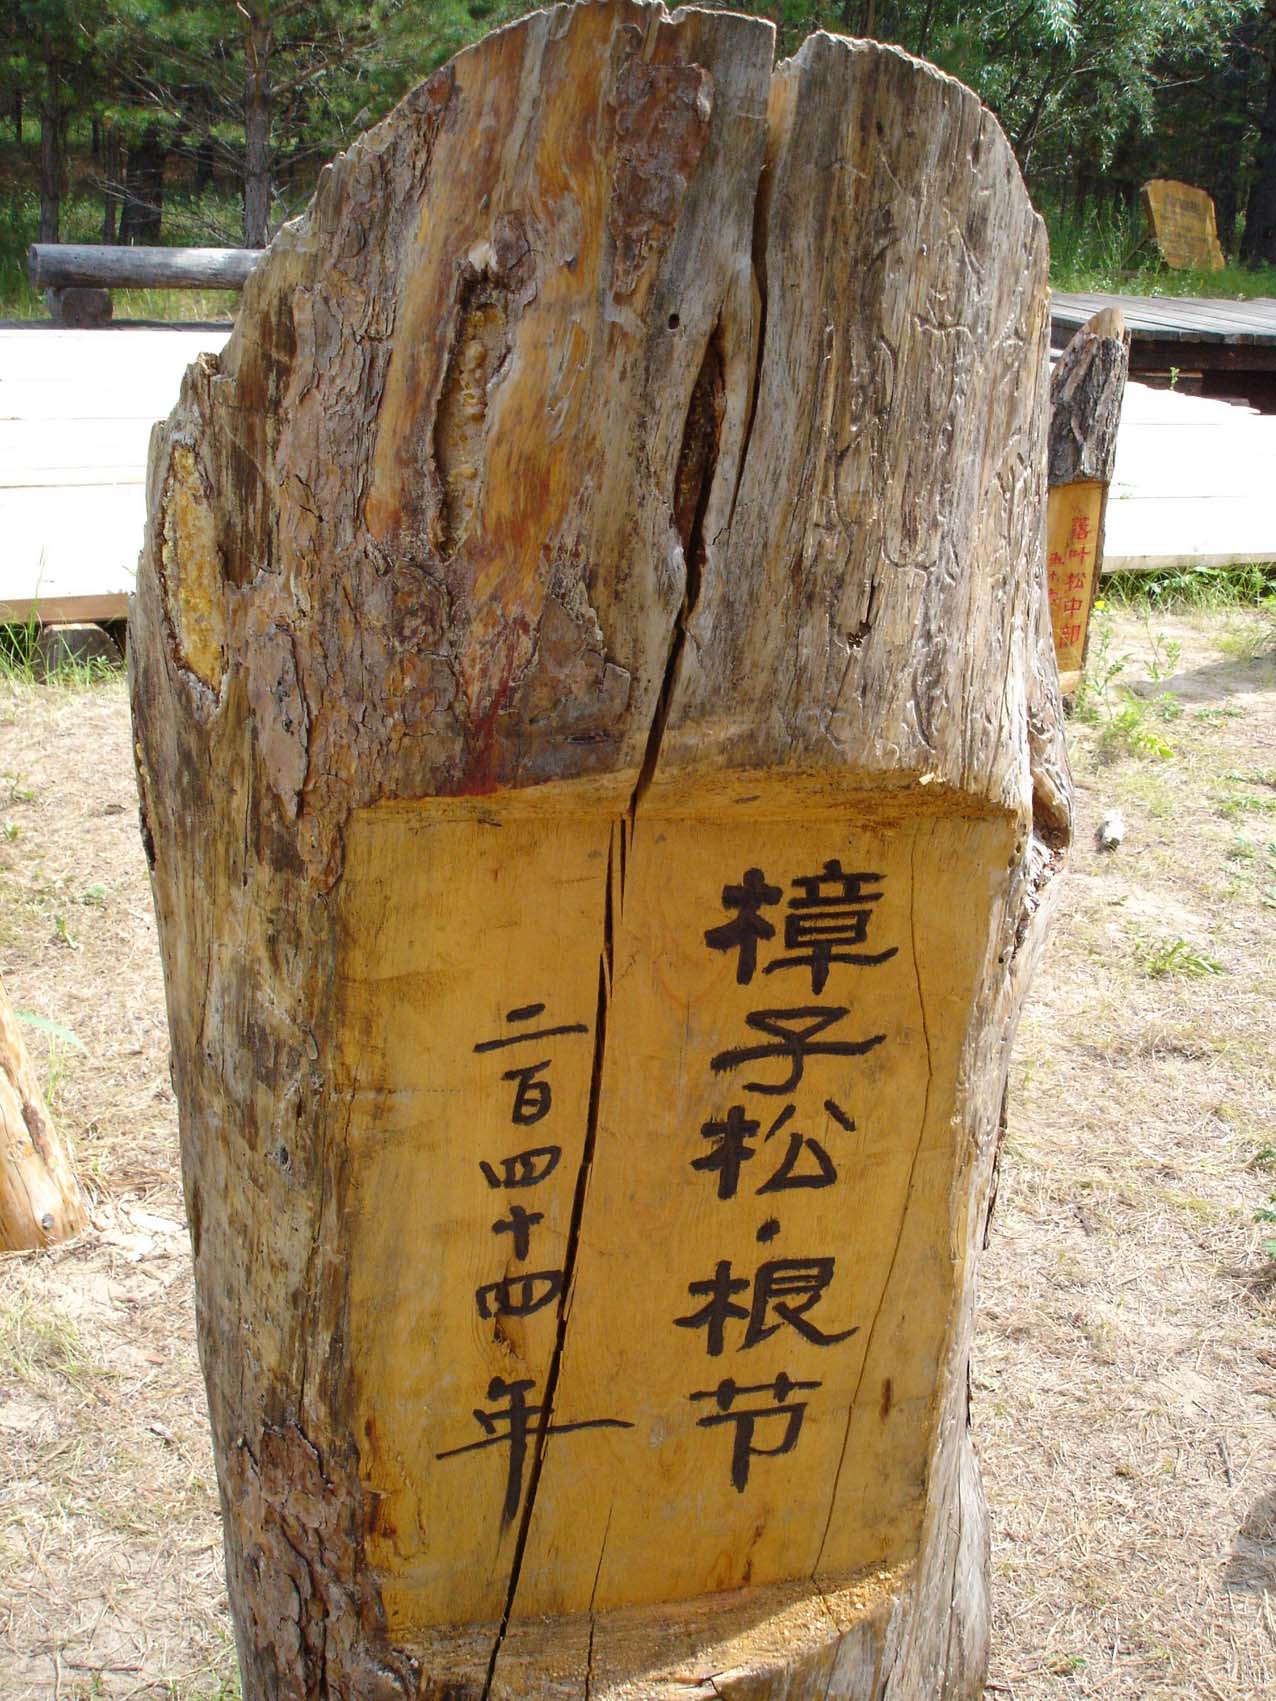 樟子松·根节
二百四十四年
落叶松中部